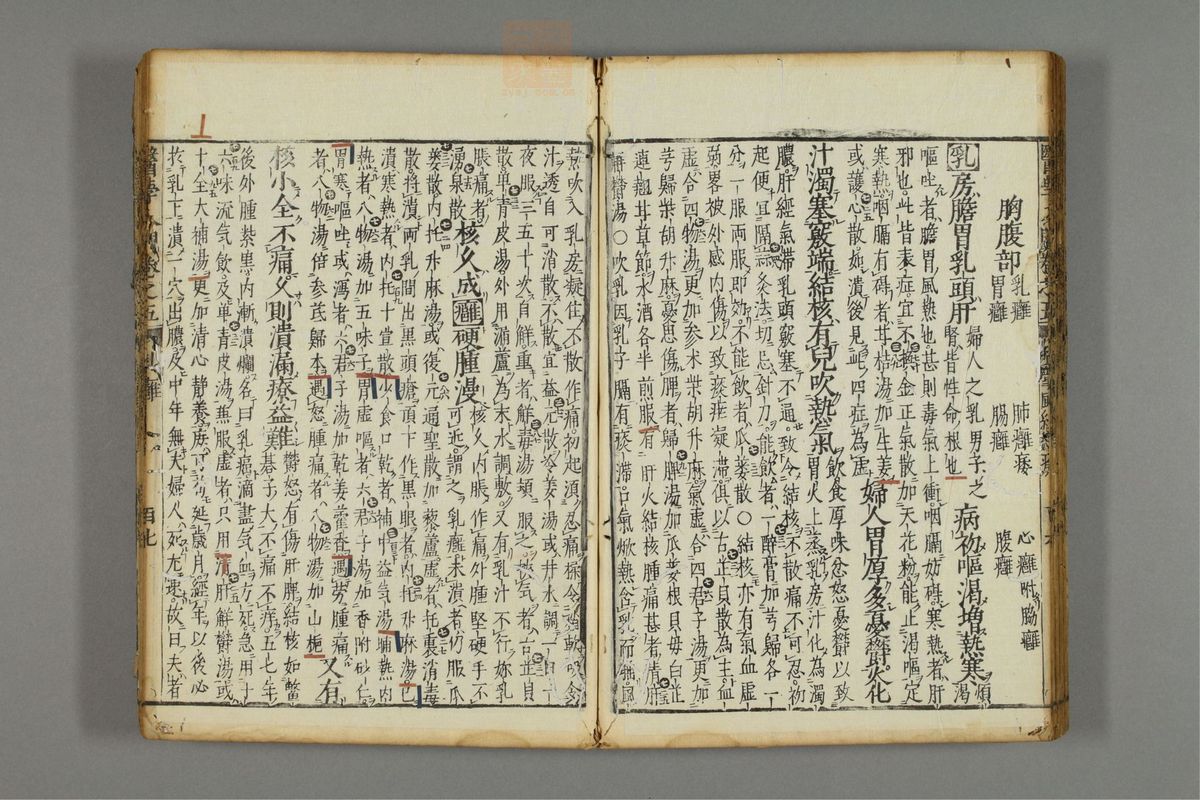 胸腹部 乳癰 肺癰痿 心癰附脇癰
胃癰 腸癰 腹癰
乳房膽胃乳頭肝 婦人之乳男子之腎皆性命根也 病初嘔渴增熱寒 煩渴
嘔吐者膽胃風熱也甚則毒氣上衝咽膈妨碍寒熱者肝
邪也此皆表症宜不換金正氣散加天花粉能止渴嘔定
寒熱咽膈有碍者甘桔湯加生姜
或護心散如潰後見四症為虛 婦人胃厚多憂鬱火化
汁濁塞竅端結核有兒吹熱氣 飲食厚味忿怒憂鬱以致胃火上蒸乳房汁化為濁
膿肝經氣滯乳頭竅塞不通致令結核不散痛不可忍初
起便宜隔蒜灸法切忌針刀能飲者一醉膏加芎歸各一
分一服兩服即効不能飲者瓜蔞散○結核亦有氣血虛
弱畧被外感內傷以致痰瘀凝滯俱以古芷貝散為主血
虛合四物湯更加參朮柴胡升麻氣虛合四君子湯更加
芎歸柴胡升麻憂思傷脾者歸脾湯加瓜蔞根貝母白芷
連翹甘草節水酒各半煎服有肝火結核腫痛甚者清肝
解鬱湯○吹乳因乳子膈有痰滯口氣焮熱含乳而睡風
熱吹入乳房凝住不散作痛初起須忍痛揉令稍軟吸令
汁透自可消散不散宜益元散冷姜湯或井水調一日一
夜服三五十次自解重者解毒湯頓服之挾氣者古芷貝
散單青皮湯外用漏蘆為末水調敷又有乳汁不行妳乳
脹痛者
湧泉散 核久成癰硬腫漫 核久內脹作痛外腫堅硬手不可近謂之乳癰未潰者仍服瓜
蔞散內托升麻湯或復元通聖散加藜蘆虛者托裏消毒
散將潰兩乳間出黑頭瘡頂下作黑眼者內托升麻湯已
潰寒熱者內托十宣散少食口乾者補中益氣湯晡熱內
熱者八物湯加五味子胃虛嘔者六君子湯加香附砂仁
胃寒嘔吐或瀉者六君子湯加乾姜藿香遇勞腫痛
者八物湯倍參芪歸本遇怒腫痛者八物湯加山梔 又有
核小全不痛久則潰滿療益難 鬱怒有傷肝脾結核如鱉棊子大不痛不痒五七年
後外腫紫黑內漸潰爛名曰乳癌滴盡氣血方死急用十
六味流氣飲及單青皮湯兼服虛者只用清肝解鬱湯或
十全大補湯更加清心靜養庶可苟延歲月經年以後心
於乳上潰一穴出膿及中年無夫婦人死尤速故曰夫者